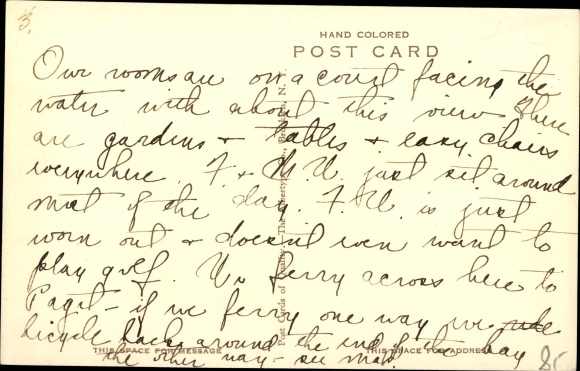 3.
HAND COLORED
POST CARD
Our rooms are on a court facing the
water with about this view. There
are gardens + tables + easy chairs
everywhere. F. + M. U. just sit around
most of the day. F. U. is just
worn out + doesn't even want to
play golf. We ferry across here to
Paget - if we ferry one way we ride
bicycle back around the end of the bay
the other way - see map.
Post Cards of Quality. — The Albertype Co., Brooklyn, N. Y.
THIS SPACE FOR MESSAGE
THIS SPACE FOR ADDRESS